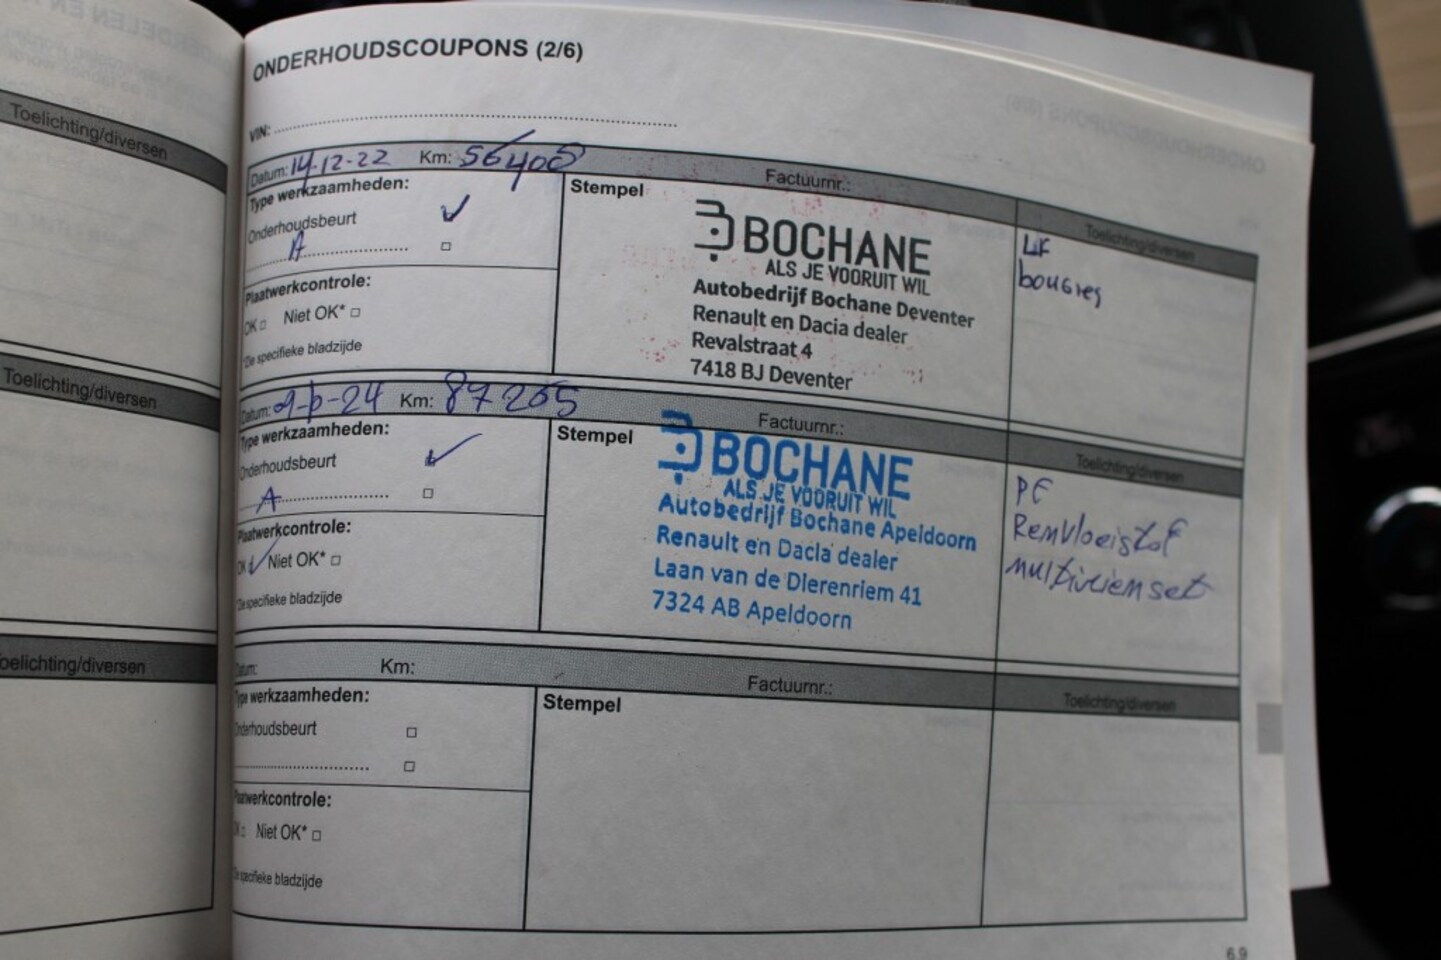 Toelichting/diversen
Toelichting/diversen
oelichting/diversen
ONDERHOUDSCOUPONS (2/6)
VIN:
Datum: 14-12-22 Km: 56400 Factuurnr.:
Type werkzaamheden:
Onderhoudsbeurt
A
Plaatwerkcontrole:
OK Niet OK*
*De specifieke bladzijde
Stempel
BOCHANE
ALS JE VOORUIT WIL
Autobedrijf Bochane Deventer
Renault en Dacia dealer
Revalstraat 4
7418 BJ Deventer
Toelichting/diversen
bougies
Datum: Km: 87265 Factuurnr.:
Type werkzaamheden:
Onderhoudsbeurt
A
Plaatwerkcontrole:
OK Niet OK*
*De specifieke bladzijde
Stempel
BOCHANE
ALS JE VOORUIT WIL
Autobedrijf Bochane Apeldoorn
Renault en Dacia dealer
Laan van de Dierenriem 41
7324 AB Apeldoorn
Toelichting/diversen
Remvloeistof
multiriemset
Datum: Km: Factuurnr.:
Type werkzaamheden:
Onderhoudsbeurt
Plaatwerkcontrole:
OK Niet OK*
De specifieke bladzijde
Stempel
Toelichting/diversen
6.9